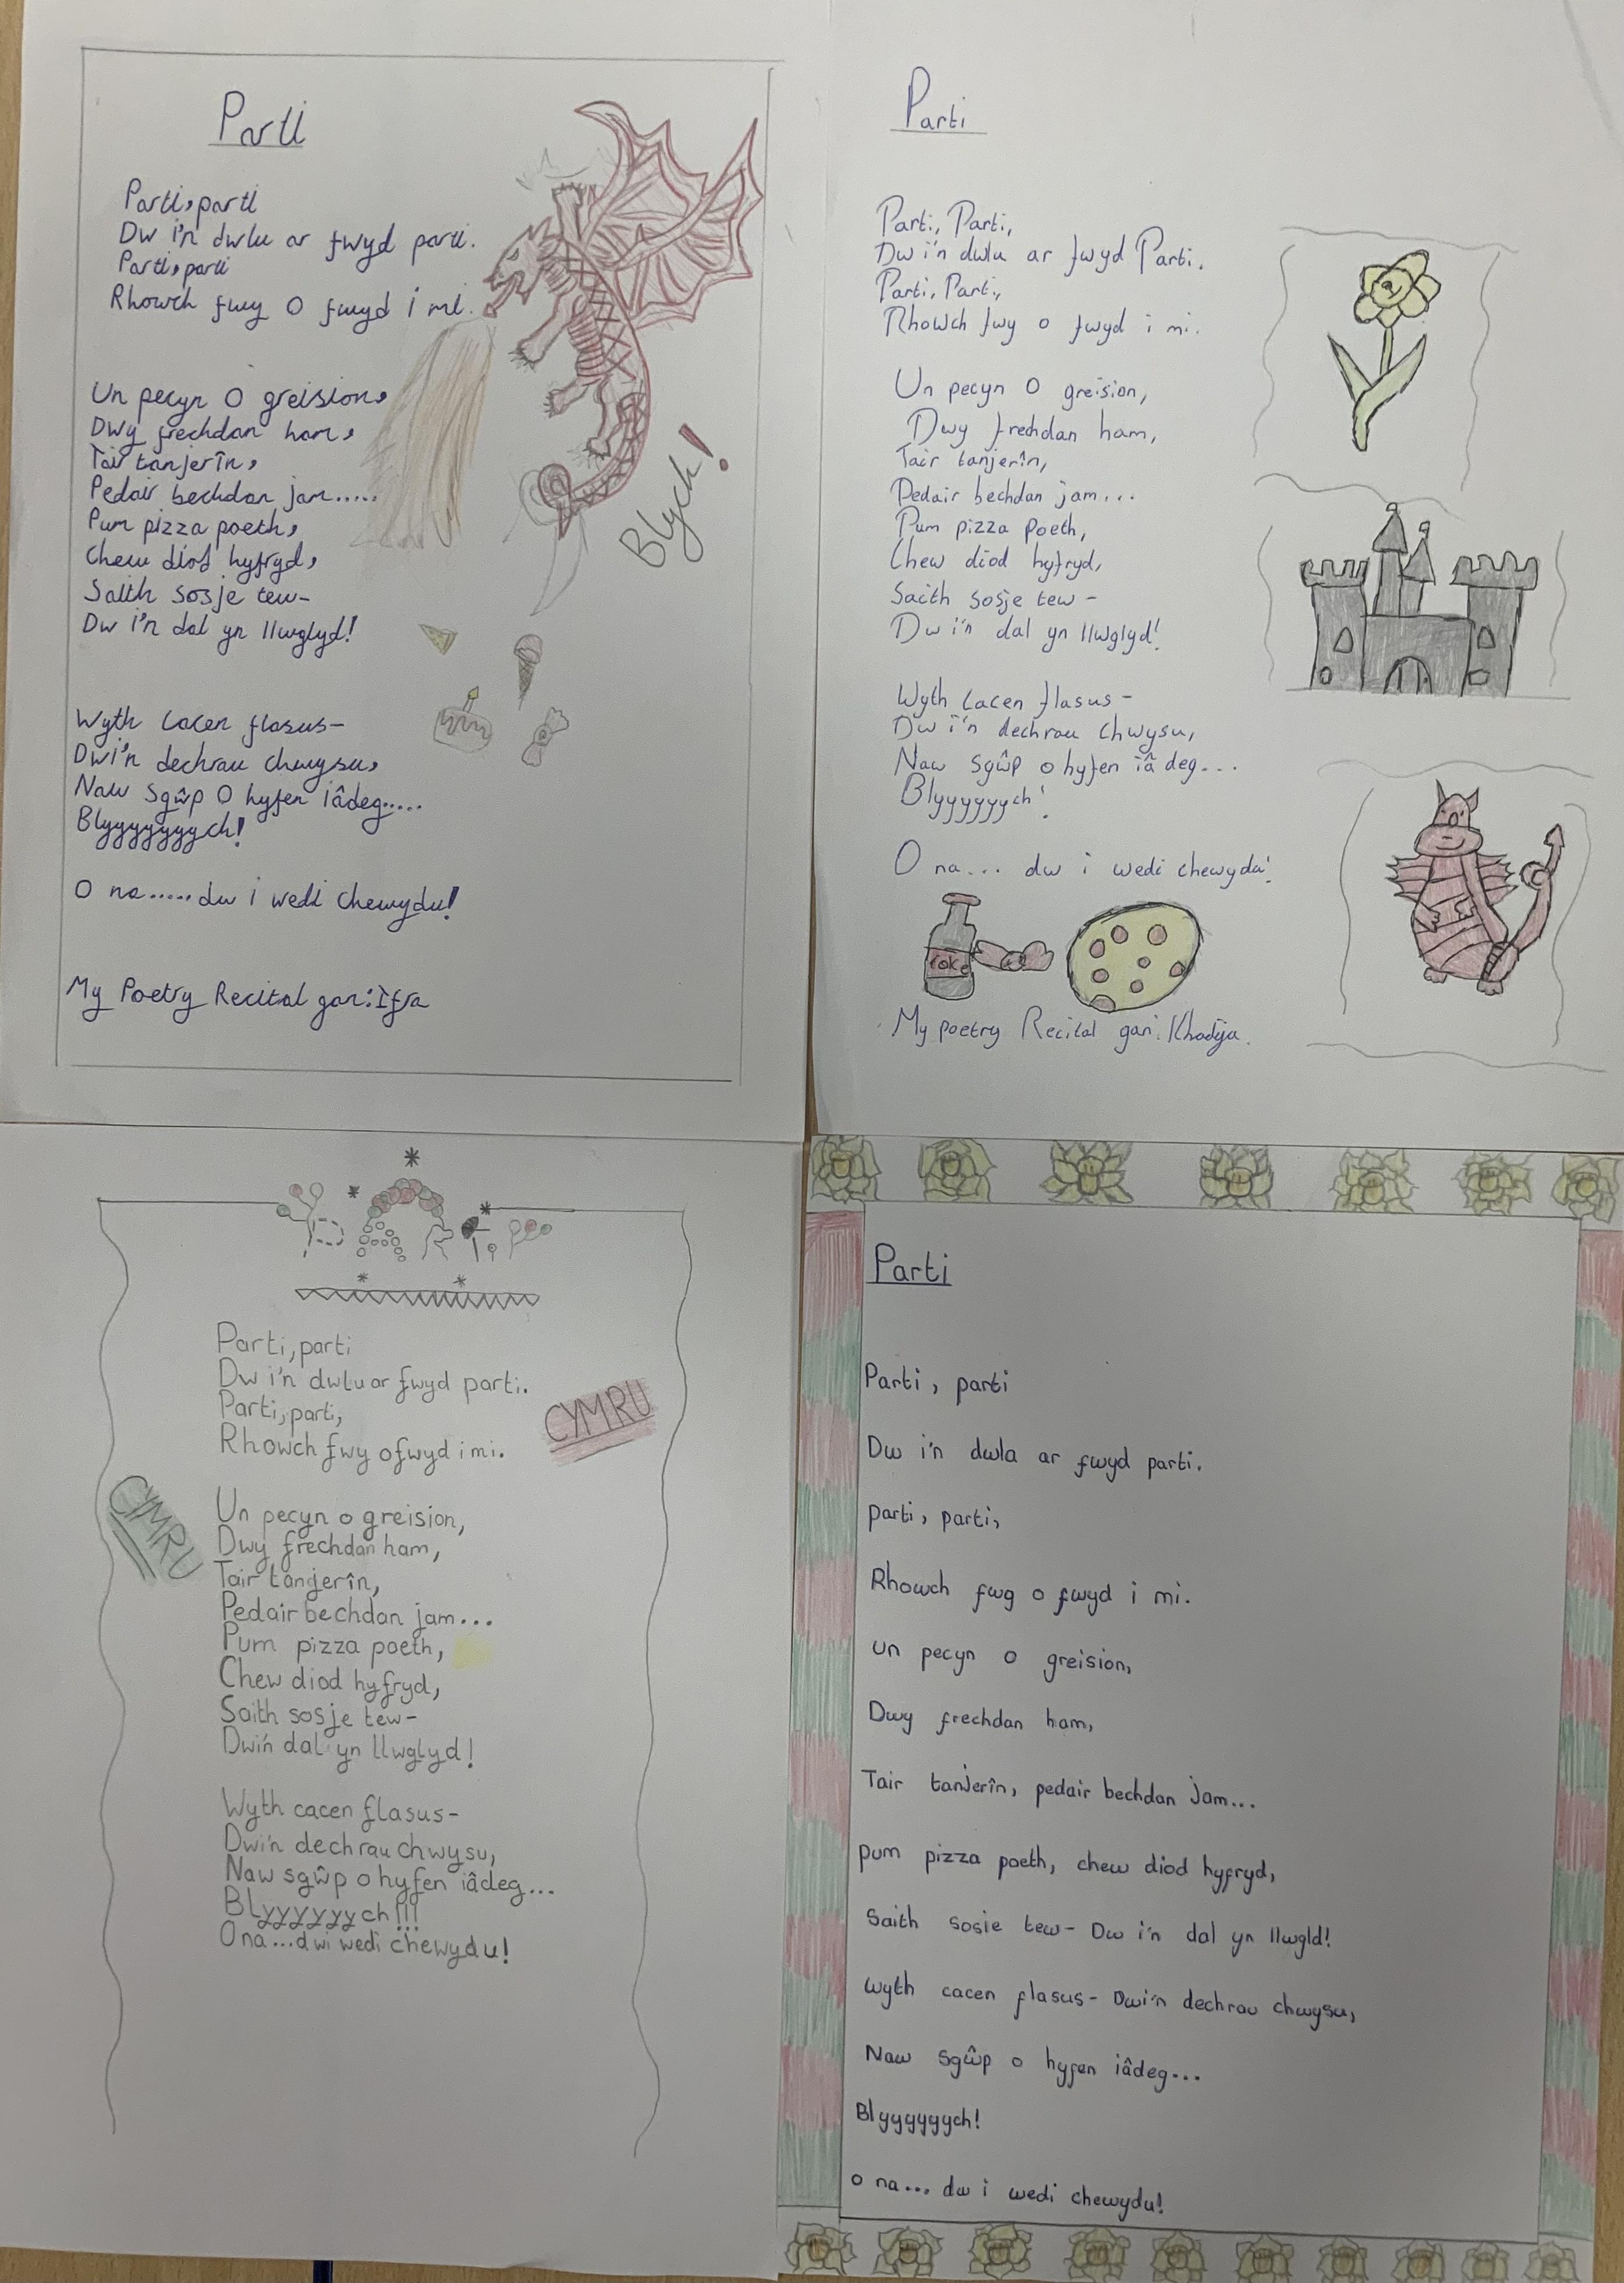 Parti
Parti, parti
Dw i'n dwlu ar fwyd parti.
Parti, parti
Rhowch fwy O fwyd i mi.
Un pecyn O greision,
Dwy frechdan ham,
Tair tanjerîn,
Pedair bechdan jam.....
Pum pizza poeth,
Chew diod hyfryd,
Saith sosje tew-
Dw i'n dal yn llwglyd!
Wyth cacen flasus-
Dwi'n dechrau chwysu,
Naw sgŵp O hyfen iâdeg.....
Blyyyyyyych!
O na.....dw i wedi chewydu!
My Poetry Recital gan: Ifra
Blych!
Parti
Parti, Parti,
Dw i'n dwlu ar fwyd Parti.
Parti, Parti,
Rhowch fwy o fwyd i mi.
Un pecyn O greision,
Dwy frechdan ham,
Tair tanjerîn,
Pedair bechdan jam...
Pum pizza poeth,
Chew diod hyfryd,
Saith sosje tew -
Dw i'n dal yn llwglyd!
Wyth cacen flasus -
Dw i'n dechrau chwysu,
Naw sgŵp o hyfen iâ deg...
Blyyyyyych!
O na... dw i wedi chewydu!
coke
My poetry Recital gan: Khadija.
Parti, parti
Dw i'n dwlu ar fwyd parti.
Parti, parti,
Rhowch fwy o fwyd i mi.
CYMRU
CYMRU
Un pecyn o greision,
Dwy frechdan ham,
Tair tanjerîn,
Pedair bechdan jam...
Pum pizza poeth,
Chew diod hyfryd,
Saith sosje tew-
Dwi'n dal yn llwglyd!
Wyth cacen flasus-
Dwi'n dechrau chwysu,
Naw sgŵp o hyfen iâdeg...
Blyyyyyych!!!
O na...dwi wedi chewydu!
Parti
Parti, parti
Dw i'n dwla ar fwyd parti.
parti, parti,
Rhowch fwg o fwyd i mi.
un pecyn o greision,
Dwy frechdan ham,
Tair tanjerîn, pedair bechdan jam...
pum pizza poeth, chew diod hyfryd,
Saith sosie tew- Dw i'n dal yn llwgld!
wyth cacen flasus- Dwi'n dechrau chwysu,
Naw sgŵp o hyfen iâdeg...
Blyyyyyych!
o na... dw i wedi chewydu!